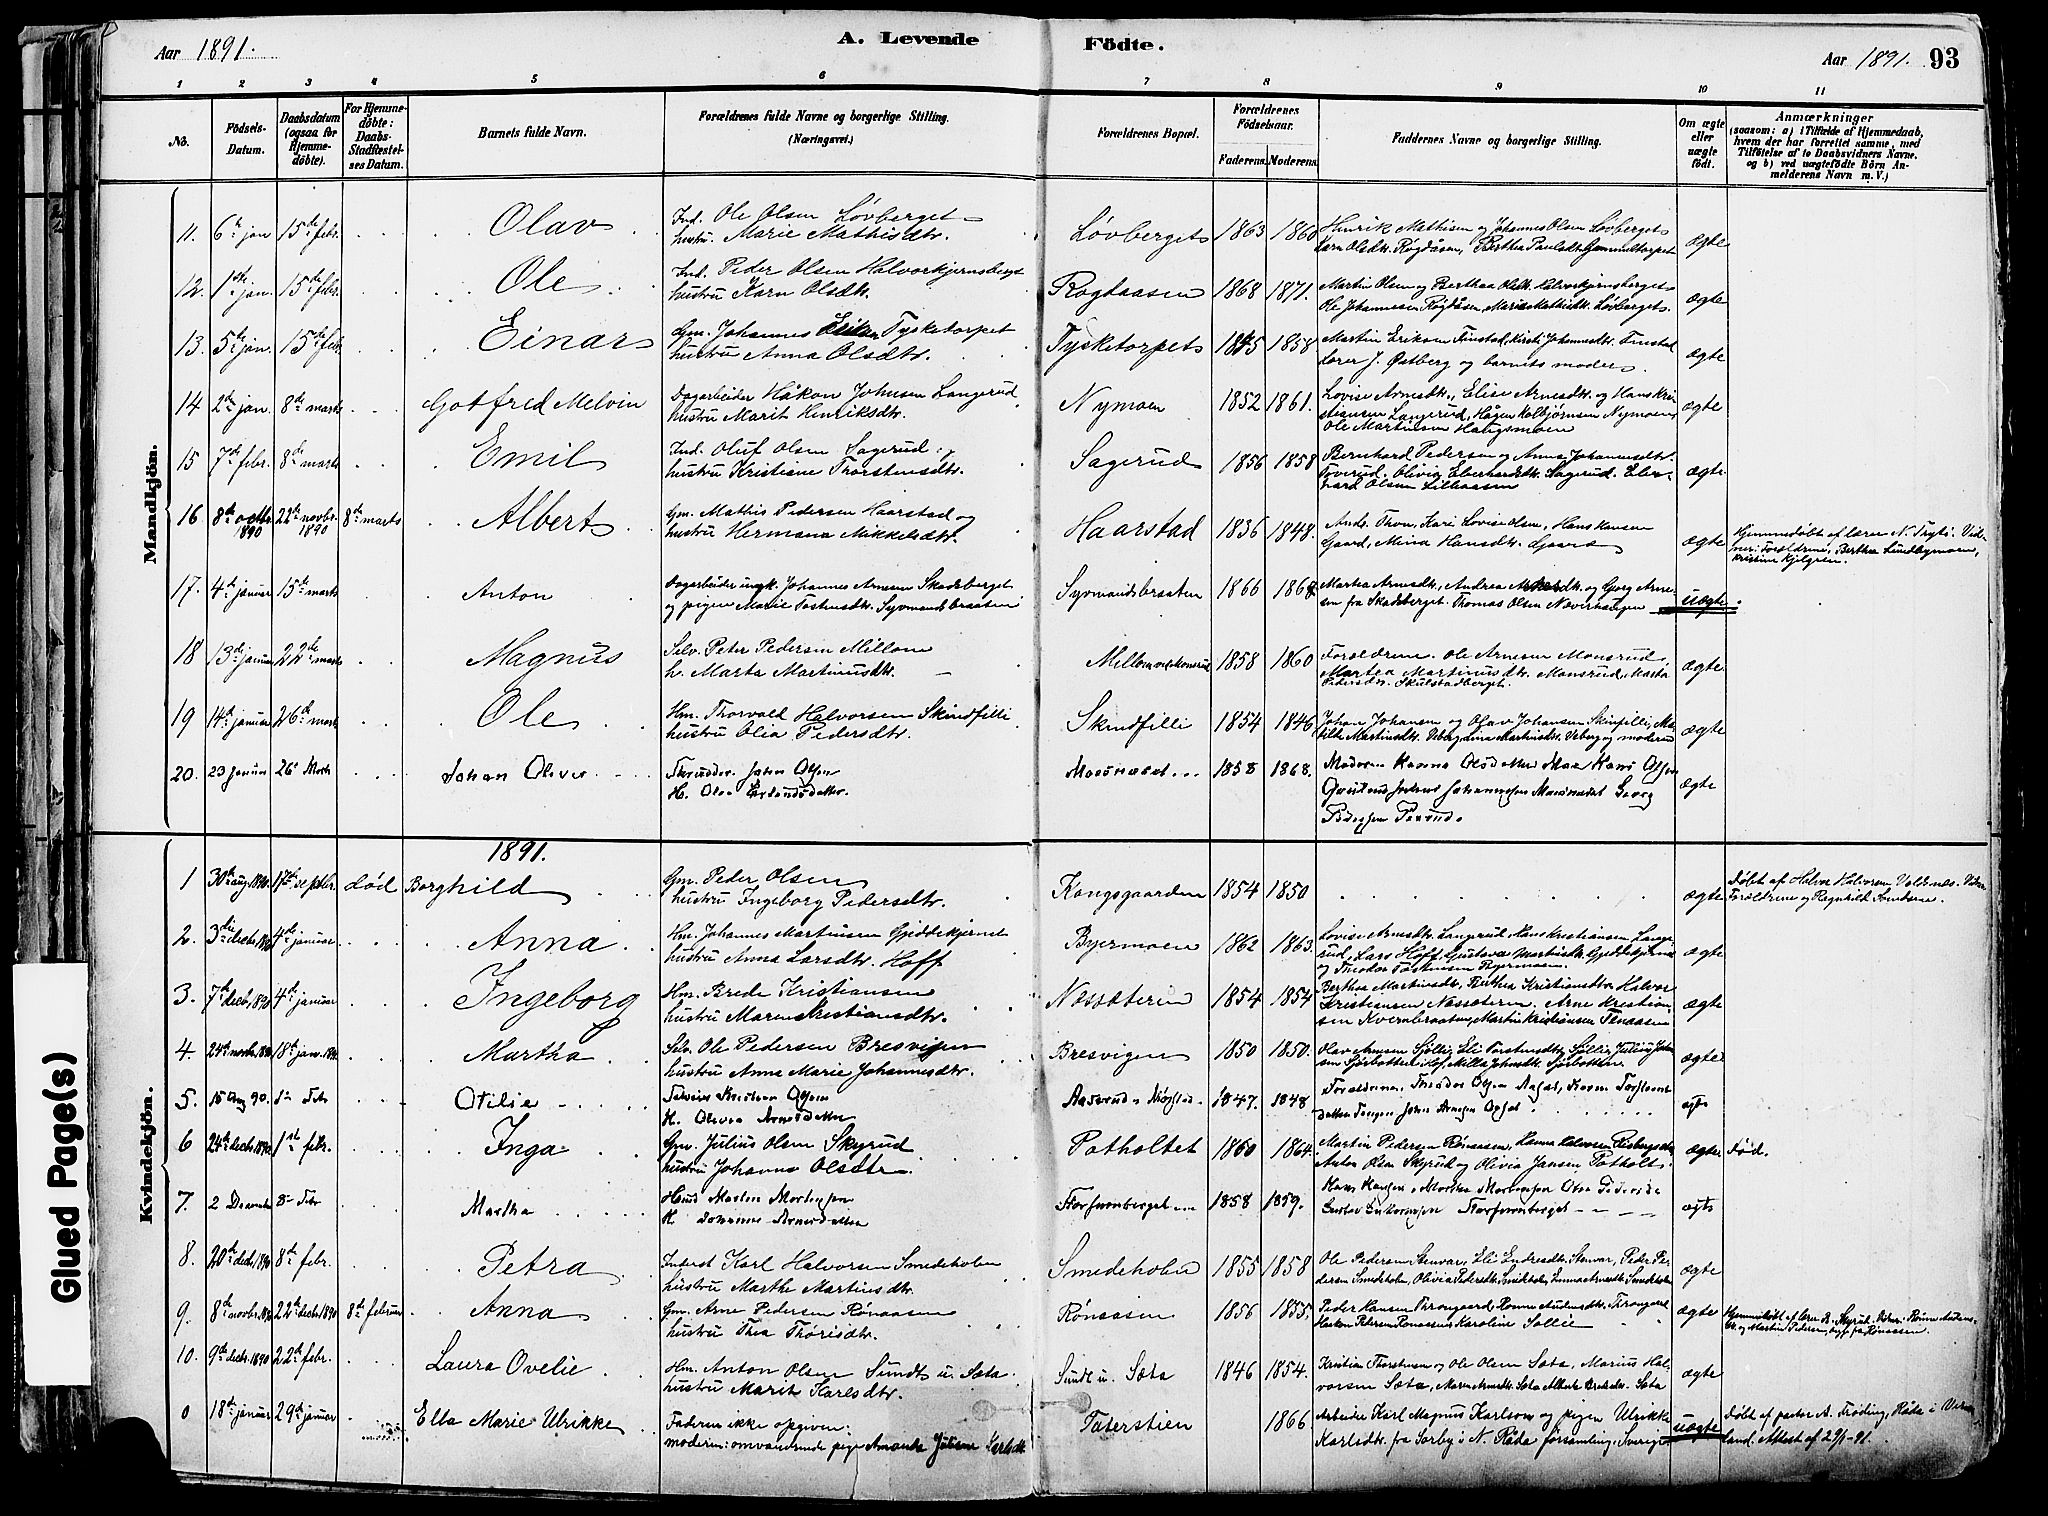 Aar 1891.
A. Levende Födte.
Aar 1891. 93
1 2 3 4 5 6 7 8 9 10 11
No.
Födsels-Datum.
Daabsdatum (ogsaa for Hjemme-döbte).
For Hjemme-döbte: Daabs-Stadfæstel-ses Datum.
Barnets fulde Navn.
Forældrenes fulde Navne og borgerlige Stilling. (Næringsvei.)
Forældrenes Bopæl.
Forældrenes Födselsaar.
Faderens. Moderens.
Faddernes Navne og borgerlige Stilling.
Om ægte eller uægte födt.
Anmærkninger
(saasom: a) i Tilfælde af Hjemmedaab,
hvem der har forrettet samme, med
Tilföielse af to Daabsvidners Navne.
og b) ved uægtefödte Börn An-
melderens Navn m. V.)
Mandkjön.
11. 6te jan 15de febr. Olav Ind. Ole Olsen Løvberget hustru Marie Mathisdtr. Løvberget 1863 1860 Henrik Mathisen og Johannes Olsen Løvberget Karn Olsdtr. Røgdåsen, Berthea Paulsdtr. Gammeltorpet ægte
12. 1ste jan. 15de febr. Ole Ind. Peder Olsen Halvorkjernsberget hustru Karn Olsdtr. Rogdaasen 1868 1871. Martin Olsen og Berthea Olsdtr. Halvorkjernsberget Ole Johannesen Røgdåsen, Marie Mathisdtr. Løvberget. ægte
13. 5te jan. 15de febr Einar Gm. Johannes Eriksen Tysketorpet hustru Anna Olsdtr. Tysketorpet 1845 1858 Martin Eriksen Finstad, Kirsti Johannesdtr. Finstad Lærer J. Østberg og barnets moder ægte
14 2den jan. 8de marts Gotfred Melvin Dagarbeider Håkon Johnsen Langerud, hustru Marit Henriksdtr. Nymoen 1852 1861. Lovise Arnesdtr., Elise Arnesdtr. og Hans Kristiansen Langerud, Hågen Kolbjørnsen Nymoen, Ole Martinsen Haugsmoen ægte
15 7de febr. 8de marts Emil Ind. Oluf Olsen Sagerud hustru Kristiane Thorstensdtr. Sagerud 1856 1858 Bernhard Pedersen og Anna Johannesdtr. Toverud, Olivia Eberhardtdtr. Sagerud. Eberhard Olsen Lilleaasen ægte
16 8de octbr. 1890 22de novbr. 1890 8de marts Albert Gm. Mathis Pedersen Haarstad og hustru Hermana Mikkelsdtr. Haarstad 1836 1848. Ands. Thon, Kari Lovise Olsen, Hans Hansen Gaard, Mina Hansdtr. Gaard ægte Hjemmedøbt af lærer N. Tryti. Vidner: Forældrene, Berthea Lindbymoen, Kristine Kjilgren.
17. 4de januar 15de marts Anton Dagarbeider ungk. Johannes Arnesen Skadsberget og pigen Marie Tostensdtr. Syvmandsbraaten Syvmandsbraaten 1866 1868 Martea Arnesdtr., Andrea Arnesdtr. og Georg Arnesen fra Skadsberget. Thomas Olsen Næverhaugen uægte
18 13de januar 22de marts Magnus Selv. Peter Pedersen Millom h. Marta Martinusdtr. Millom Monsrud 1858 1860 Forældrene. Ole Arnesen Monsrud, Martea Martinusdtr. Monsrud, Marta Pedersdtr. Skulstadberget. ægte
19 14de januar 26de marts Ole Hm. Thorvald Halvorsen Skindfilli hustru Olia Pedersdtr. Skindfilli 1854 1846 Johan Johansen og Olav Johansen Skinfilli, Matilde Martinsdtr. Veberg, Lina Martinsdtr. Veberg og moderen ægte
20. 23 Januar 26 Marts Johan Oliver Theodor Johan Olsen H. Olea Erlandsdatter. 1858 1868. Moderen Hanna Olsdatter Hans Olsen Johannesen Georg Pedersen ægte
Kvindekjön.
1891.
1 30te aug. 1890 17de septbr. død Borghild Gm. Peder Olsen hustru Ingeborg Pedersdtr. Kongsgaarden 1854 1850 ægte Døbt af Halvor Halvorsen Valdenæs. Vidner Forældrene og Ragnhild Amundsen.
2. 3die decbr. 1890 4de januar Anna Hm. Johannes Martinsen Gjeddekjernet hustru Anna Larsdtr. Hoff Byermoen 1862 1863. Lovise Arnesdtr. Langerud, Hans Kristiansen Langerud, Lars Hoff, Gustava Martinsdtr. Gjeddekjernet og Theodor Tostensen Byermoen. ægte
3. 7de decbr. 1890 4de januar Ingeborg Hm. Brede Kristiansen hustru Maren Kristiansdtr. Næssæteren 1854 1854 Berthea Martinsdtr., Berthea Kristiansdtr., Halvor Kristiansen Næssæteren. Arne Kristiansen Kvernbraaten, Martin Kristiansen Tenaasen ægte
4. 24de novbr. 1890 18de jan. 1891 Martha Selv. Ole Pedersen Bresvigen hustru Anna Marie Johannesdtr. Bresvigen 1850 1850. Olav Arnesen Sjølli, Eli Torstensdtr. Sjølli, Julius Johnsen Sjøbotten i Hof, Milla Johnsdtr. Sjøbotten ægte
5. 15 Aug 90. 1ste Febr Otilie H. Olivia Arnesdatter Aaserud 1847. 1848 Forældrene, Theodor Olsen Aafat, Karen Torstensdatter, Johan Arnesen ægte
6 24de decbr. 1890 1ste febr. Inga Gm. Julius Olsen Skyrud hustru Johanne Olsdtr. Potholtet 1860 1864. Martin Pedersen Rønaasen, Hanna Halvorsen Risbergseter, Anton Olsen Skyrud og Olivia Jansen Potholt. ægte Død.
7. 2 December 8de Febr Martha Huusm. Morten Mortensen H. Johanne Arnesdatter Storfurunberget 1858 1859. Hans Hansen, Martha Mortensen, Olea Gustav Storfurunberget ægte
8. 20de decbr. 1890 8de febr. Petra Inderst Karl Halvorsen Smedeholen hustru Marthe Martinsdtr. Smedeholen 1855 1858 Ole Pedersen Stenvar, Eli Endresdtr. Stenvar, Peder Pedersen Smedeholen, Olivia Pedersdtr. Smedeholen, Emma Arnesdtr. Smedeholen ægte
9. 8de novbr. 1890 22de decbr. 1890 8de februar Anna Gm. Arne Pedersen Rønaasen hustru Thea Thorisdtr. Rønaasen 1856 1855. Peder Hansen Throngaard, Rønne Audensdtr. Throngaard Haakon Pedersen Rønaasen, Karoline Sollie ægte Hjemmedøbt af lærer A. Skyrud. Vidner: Rønne Audensdtr. og Martin Pedersen, begge fra Rønaasen.
10. 9de decbr. 1890 22de febr. Laura Ovelie Hm. Anton Olsen Sundt u. Sæta hustru Marit Karlsdtr. Sundt u. Sæta 1846 1854. Kristian Thorstensen og Ole Olsen Sæta, Marius Halvorsen Sæta, Maren Arnesdtr. Sæta, Sæta ægte
0 18de januar 29de januar Ella Marie Ulrikke Faderen ikke opgiven: moderen: omvandrende pige Amanda Juliane Karlsdtr. Taterstien 1866 Arbeider Karl Magnus Karlsson og pigen Ulrikke Karlsdtr. fra Sørby i N. Råda församling, Sverige uægte Døbt af pastor A. Fröding, Råda i Vermland. Attest af 29/1-91.
Glued Page(s)